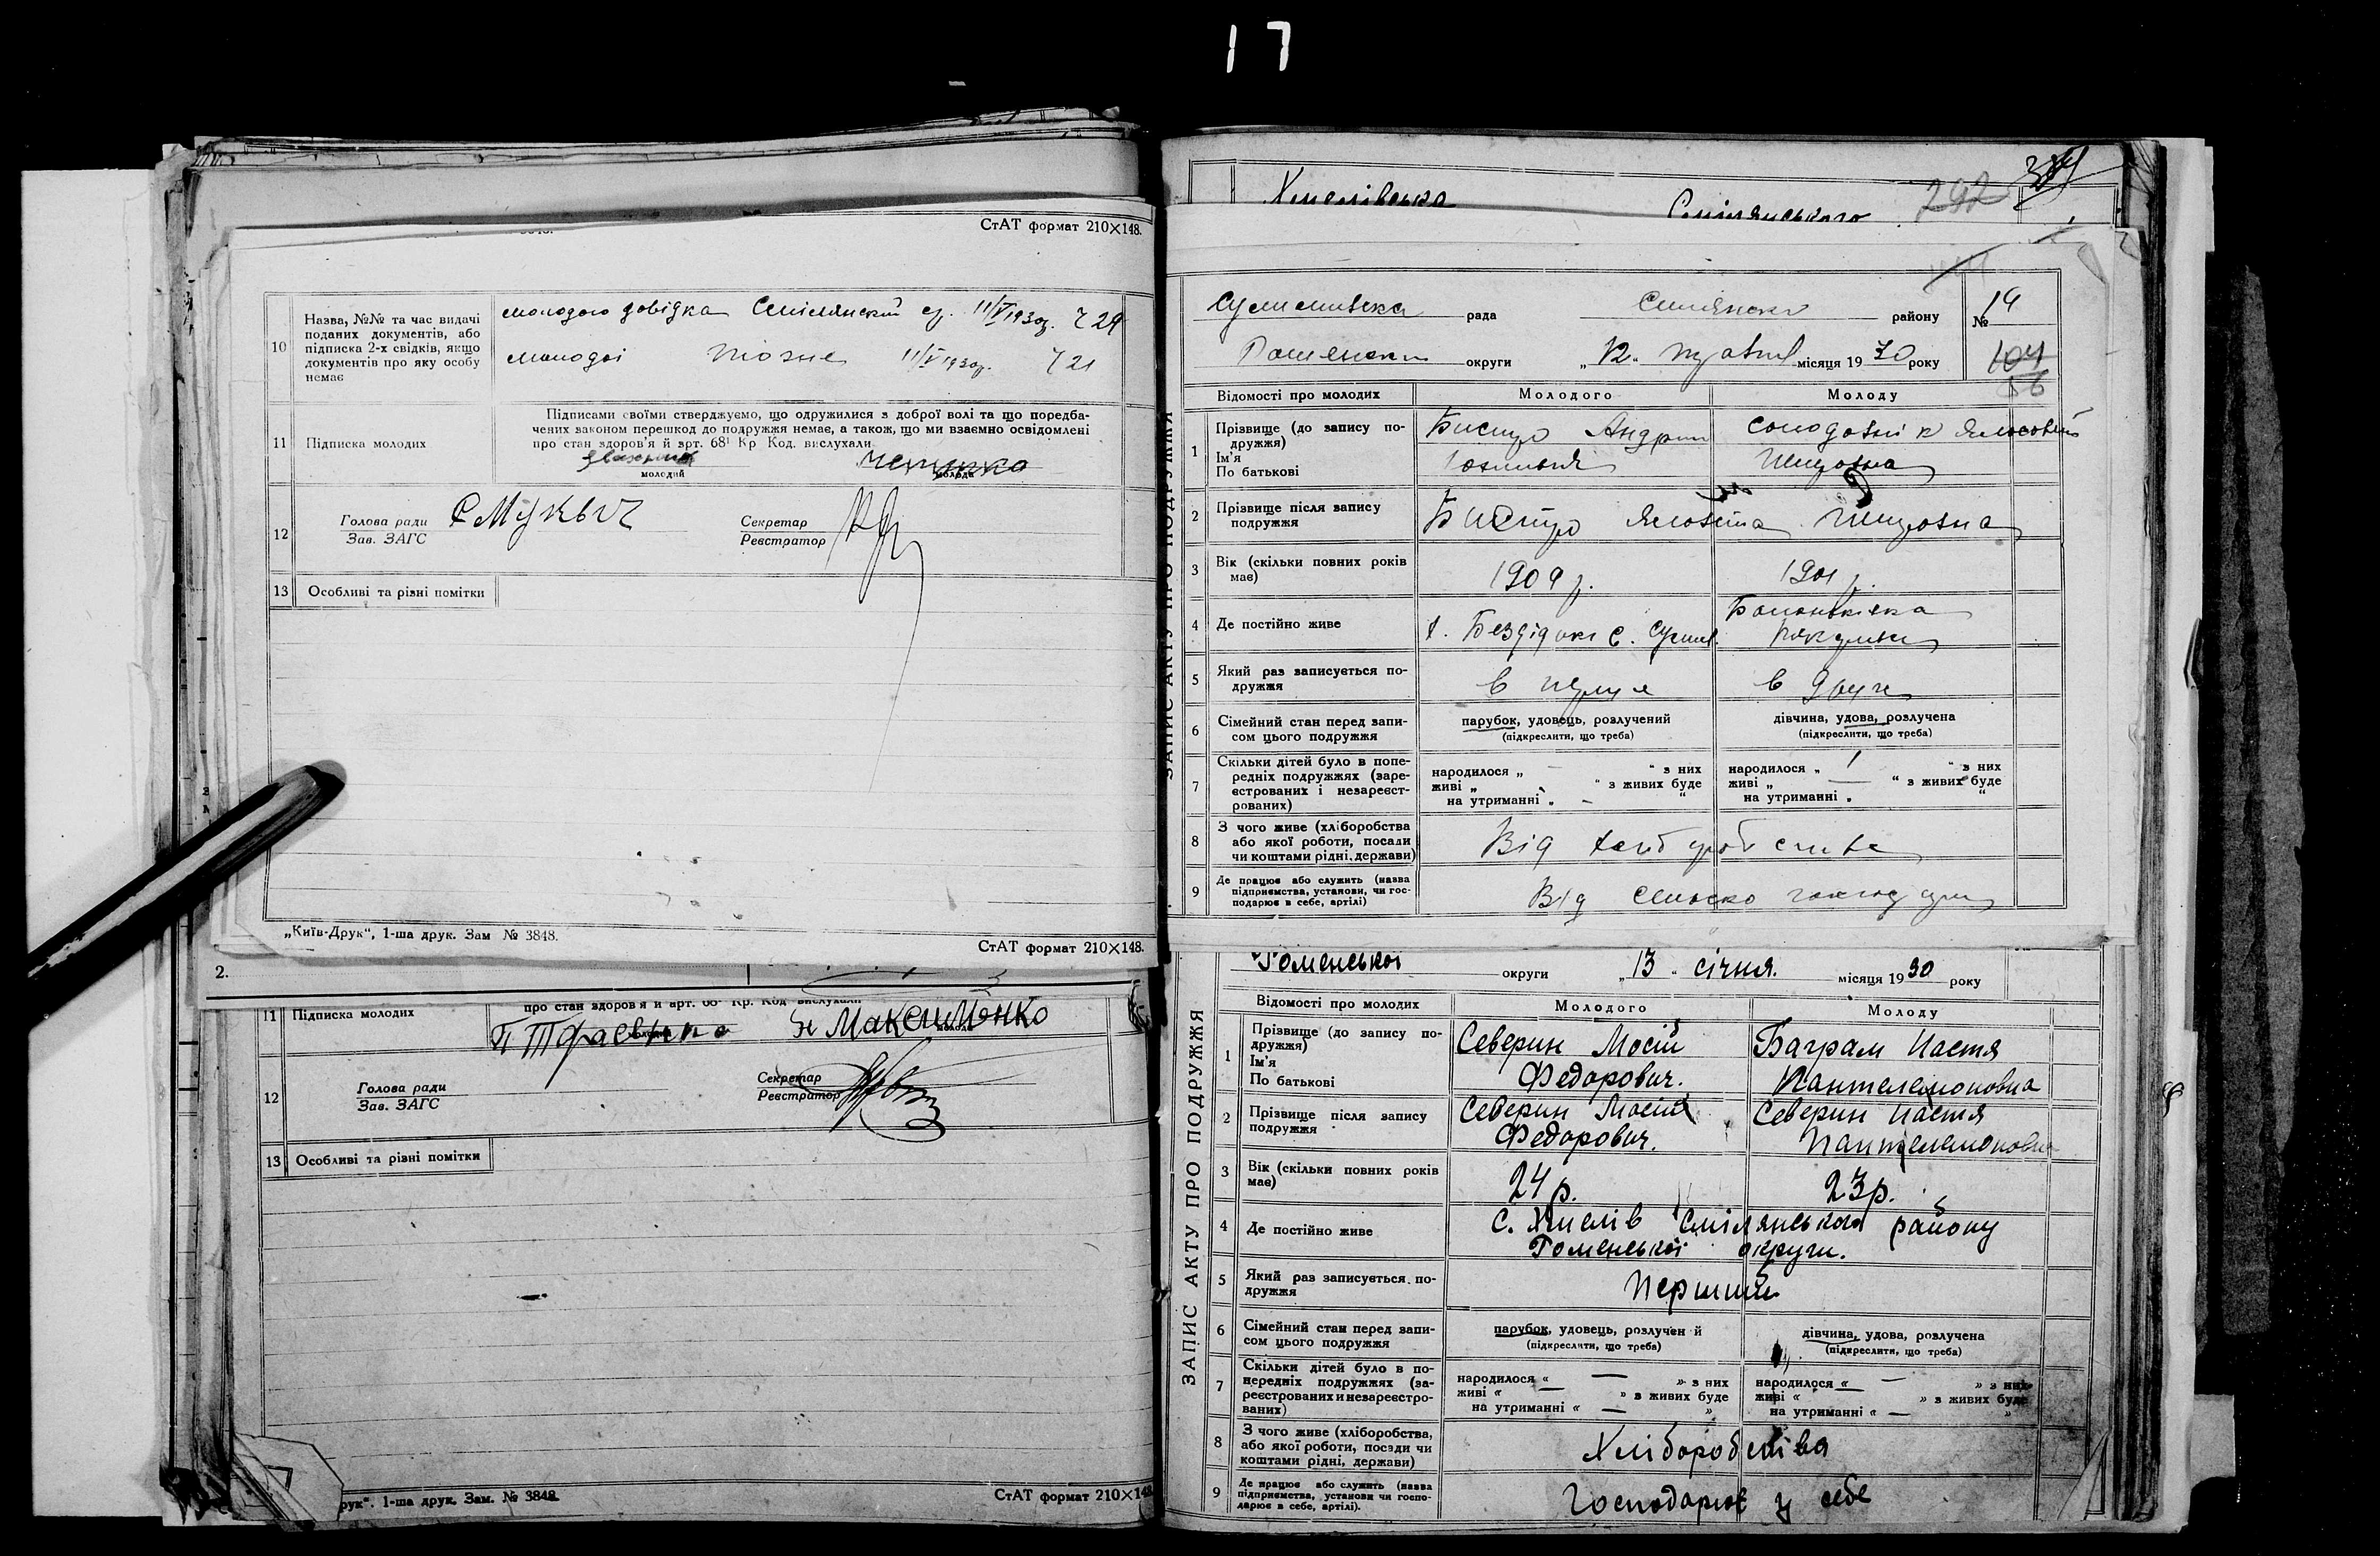 17
СтАТ формат 210×148.
10
Назва, №№ та час видачі
поданих документів, або
підписка 2-х свідків, якщо
документів про яку особу
немає
молодого довідка Смілянский 11/V 1930р. 29
молодої тоже 11/V 1930р. 21
11
Підписка молодих
Підписами своїми стверджуємо, що одружилися з доброї волі та що поредба-
чених законом перешкод до подружжя немає, а також, що ми взаємно освідомлені
про стан здоров'я й арт. 68¹ Кр Код. вислухали
молодий
молода
12
Голова ради
Зав. ЗАГС
Секретар
Реєстратор
13 Особливі та різні помітки
„Київ-Друк“, 1-ша друк. Зам № 3848.
СтАТ формат 210×148.
2.
11 Підписка молодих
про стан здоров'я й арт. 68¹ Кр. Код вислухали
Максименко
12
Голова ради
Зав. ЗАГС
Секретар
Реєстратор
13 Особливі та різні помітки
рук“. 1-ша друк. Зам. № 3848.
СтАТ формат 210×148
Хмелівська Смілянського 292
рада району № 14
округи „12“ місяця 1930 року 104
56
ЗАПИС АКТУ ПРО ПОДРУЖЖЯ
Відомості про молодих Молодого Молоду
1
Прізвище (до запису по-
дружжя)
Ім'я
По батькові
Бистро Андрій
2
Прізвище після запису
подружжя
Бистро
3
Вік (скільки повних років
має)
1909 р. 1901 р.
4 Де постійно живе
5
Який раз записується по-
дружжя
в перше в друге
6
Сімейний стан перед запи-
сом цього подружжя
парубок, удовець, розлучений
(підкреслити, що треба)
дівчина, удова, розлучена
(підкреслити, що треба)
7
Скільки дітей було в попе-
редніх подружжях (заре-
єстрованих і незареєст-
рованих)
народилося „ — “ з них
живі „ “ з живих буде
на утриманні „ — “
народилося „ 1 “ з них
живі „ — “ з живих буде
на утриманні „ “
8
З чого живе (хліборобства
або якої роботи, посади
чи коштами рідні, держави)
Від
9
Де працює або служить (назва
підприємства, установи, чи гос-
подарює в себе, артілі)
Від
Роменської округи „13“ січня. місяця 1930 року
ЗАПИС АКТУ ПРО ПОДРУЖЖЯ
Відомості про молодих Молодого Молоду
1
Прізвище (до запису по-
дружжя)
Ім'я
По батькові
Северин Мосій
Федорович.
Баграм Настя
Пантелемоновна
2
Прізвище після запису
подружжя
Северин Мосій
Федорович.
Северин Настя
Пантелемоновна
3
Вік (скільки повних років
має)
24 р. 23 р.
4 Де постійно живе
с. Хмелів Смілянського району
Роменської округи.
5
Який раз записується по-
дружжя
Перший
6
Сімейний стан перед запи-
сом цього подружжя
парубок, удовець, розлучен й
(підкреслити, що треба)
дівчина, удова, розлучена
(підкреслити, що треба)
7
Скільки дітей було в по-
передніх подружжях (за-
реєстрованих и незареєстро-
ваних)
народилося « — » з них
живі « — » з живих буде
на утриманні « — »
народилося « — » з них
живі « » з живих буде
на утриманні « — »
8
З чого живе (хліборобства,
або якої роботи, посади чи
коштами рідні, держави)
Хліборобства
9
Де працює або служить (назва
підприємства, установи чи госпо-
дарює в себе, артілі).
Господарює у себе